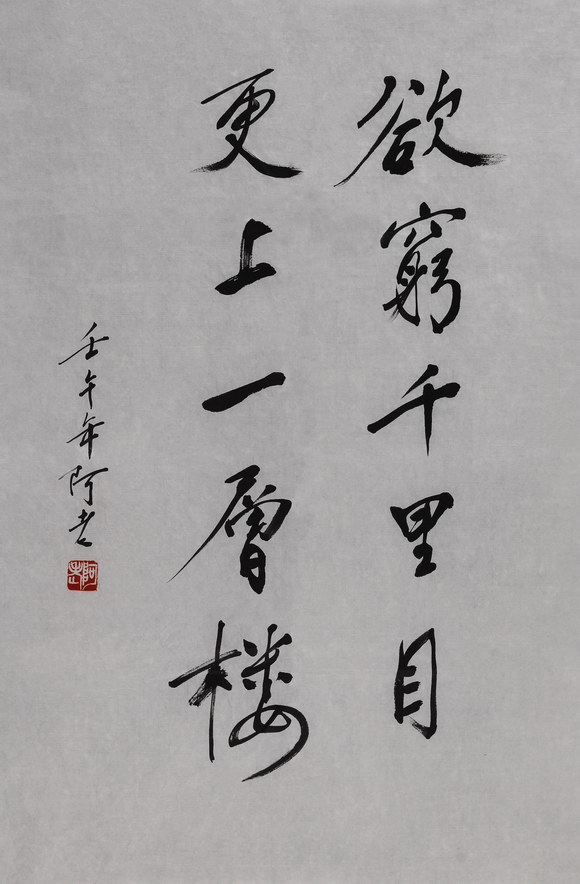 欲窮千里目
更上一層楼
壬午年阿老
阿老